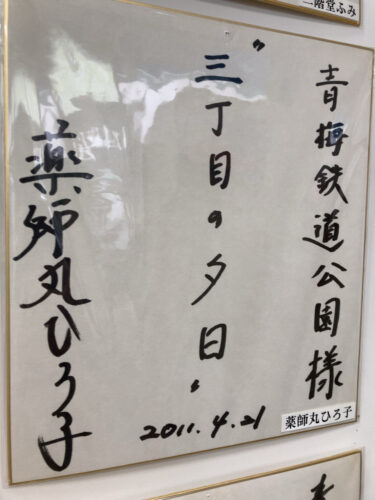 二階堂ふみ
青梅鉄道公園様
"三丁目の夕日"
薬師丸ひろ子
2011.4.21
薬師丸ひろ子